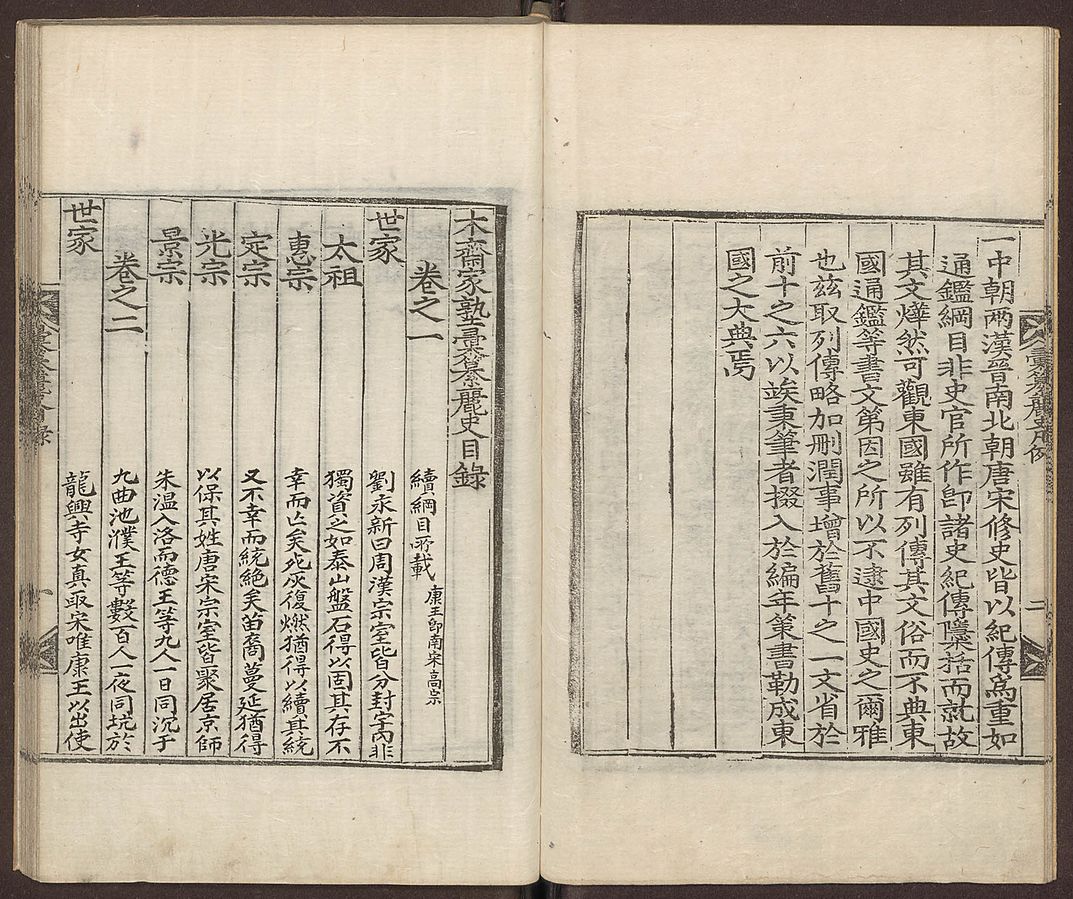 一中朝兩漢晉南北朝唐宋修史皆以紀傳爲重如
通鑑綱目非史官所作卽諸史紀傳檃括而就故
其文燁然可觀東國雖有列傳其文俗而不典東
國通鑑等書文第因之所以不逮中國史之爾雅
也玆取列傳略加刪潤事增於舊十之一文省於
前十之六以竢秉筆者掇入於編年策書勒成東
國之大典焉
彙纂麗史凡例
二
木齋家塾彙纂麗史目錄
卷之一
續綱目所載 康王卽南宋高宗
世家
劉永新曰周漢宗室皆分封宇內非
太祖
獨資之如泰山盤石得以固其存不
惠宗
幸而亡矣死灰復燃猶得以續其統
定宗
又不幸而統絶矣苗裔蔓延猶得
光宗
以保其姓唐宋宗室皆聚居京師
景宗
朱溫入洛而德王等九人一日同沉于
卷之二
九曲池濮王等數百人一夜同坑於
世家
龍興寺女真取宋唯康王以出使